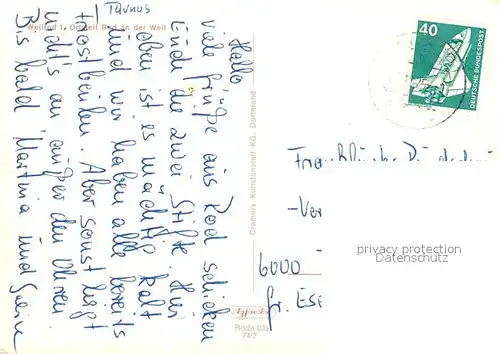 Taunus
Weilrod 1, Ortsteil Rod an der Weil
Hallo
viele Grüße aus Rod schicken
Euch die zwei Stifte. Hier
oben ist es mächtig kalt
und wir haben alle bereits
Frostbeulen. Aber sonst liegt
nichts an außer den Ohren.
Bis bald Martina und
Cramers Kunstanstalt KG, Dortmund
Roda 035
74/2
40
DEUTSCHE BUNDESPOST
-Ver
privacy protection
Datenschutz
6000
Gr. ESE